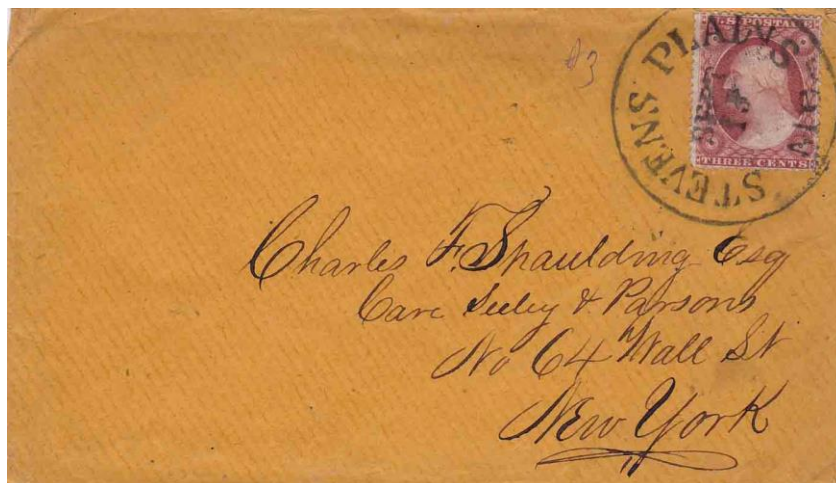 U.S. POSTAGE
STEVENS PLAINS
SEP
THREE CENTS
#3
Charles F. Spaulding Esq
Care Seeley & Parsons
No 64 Wall St
New York